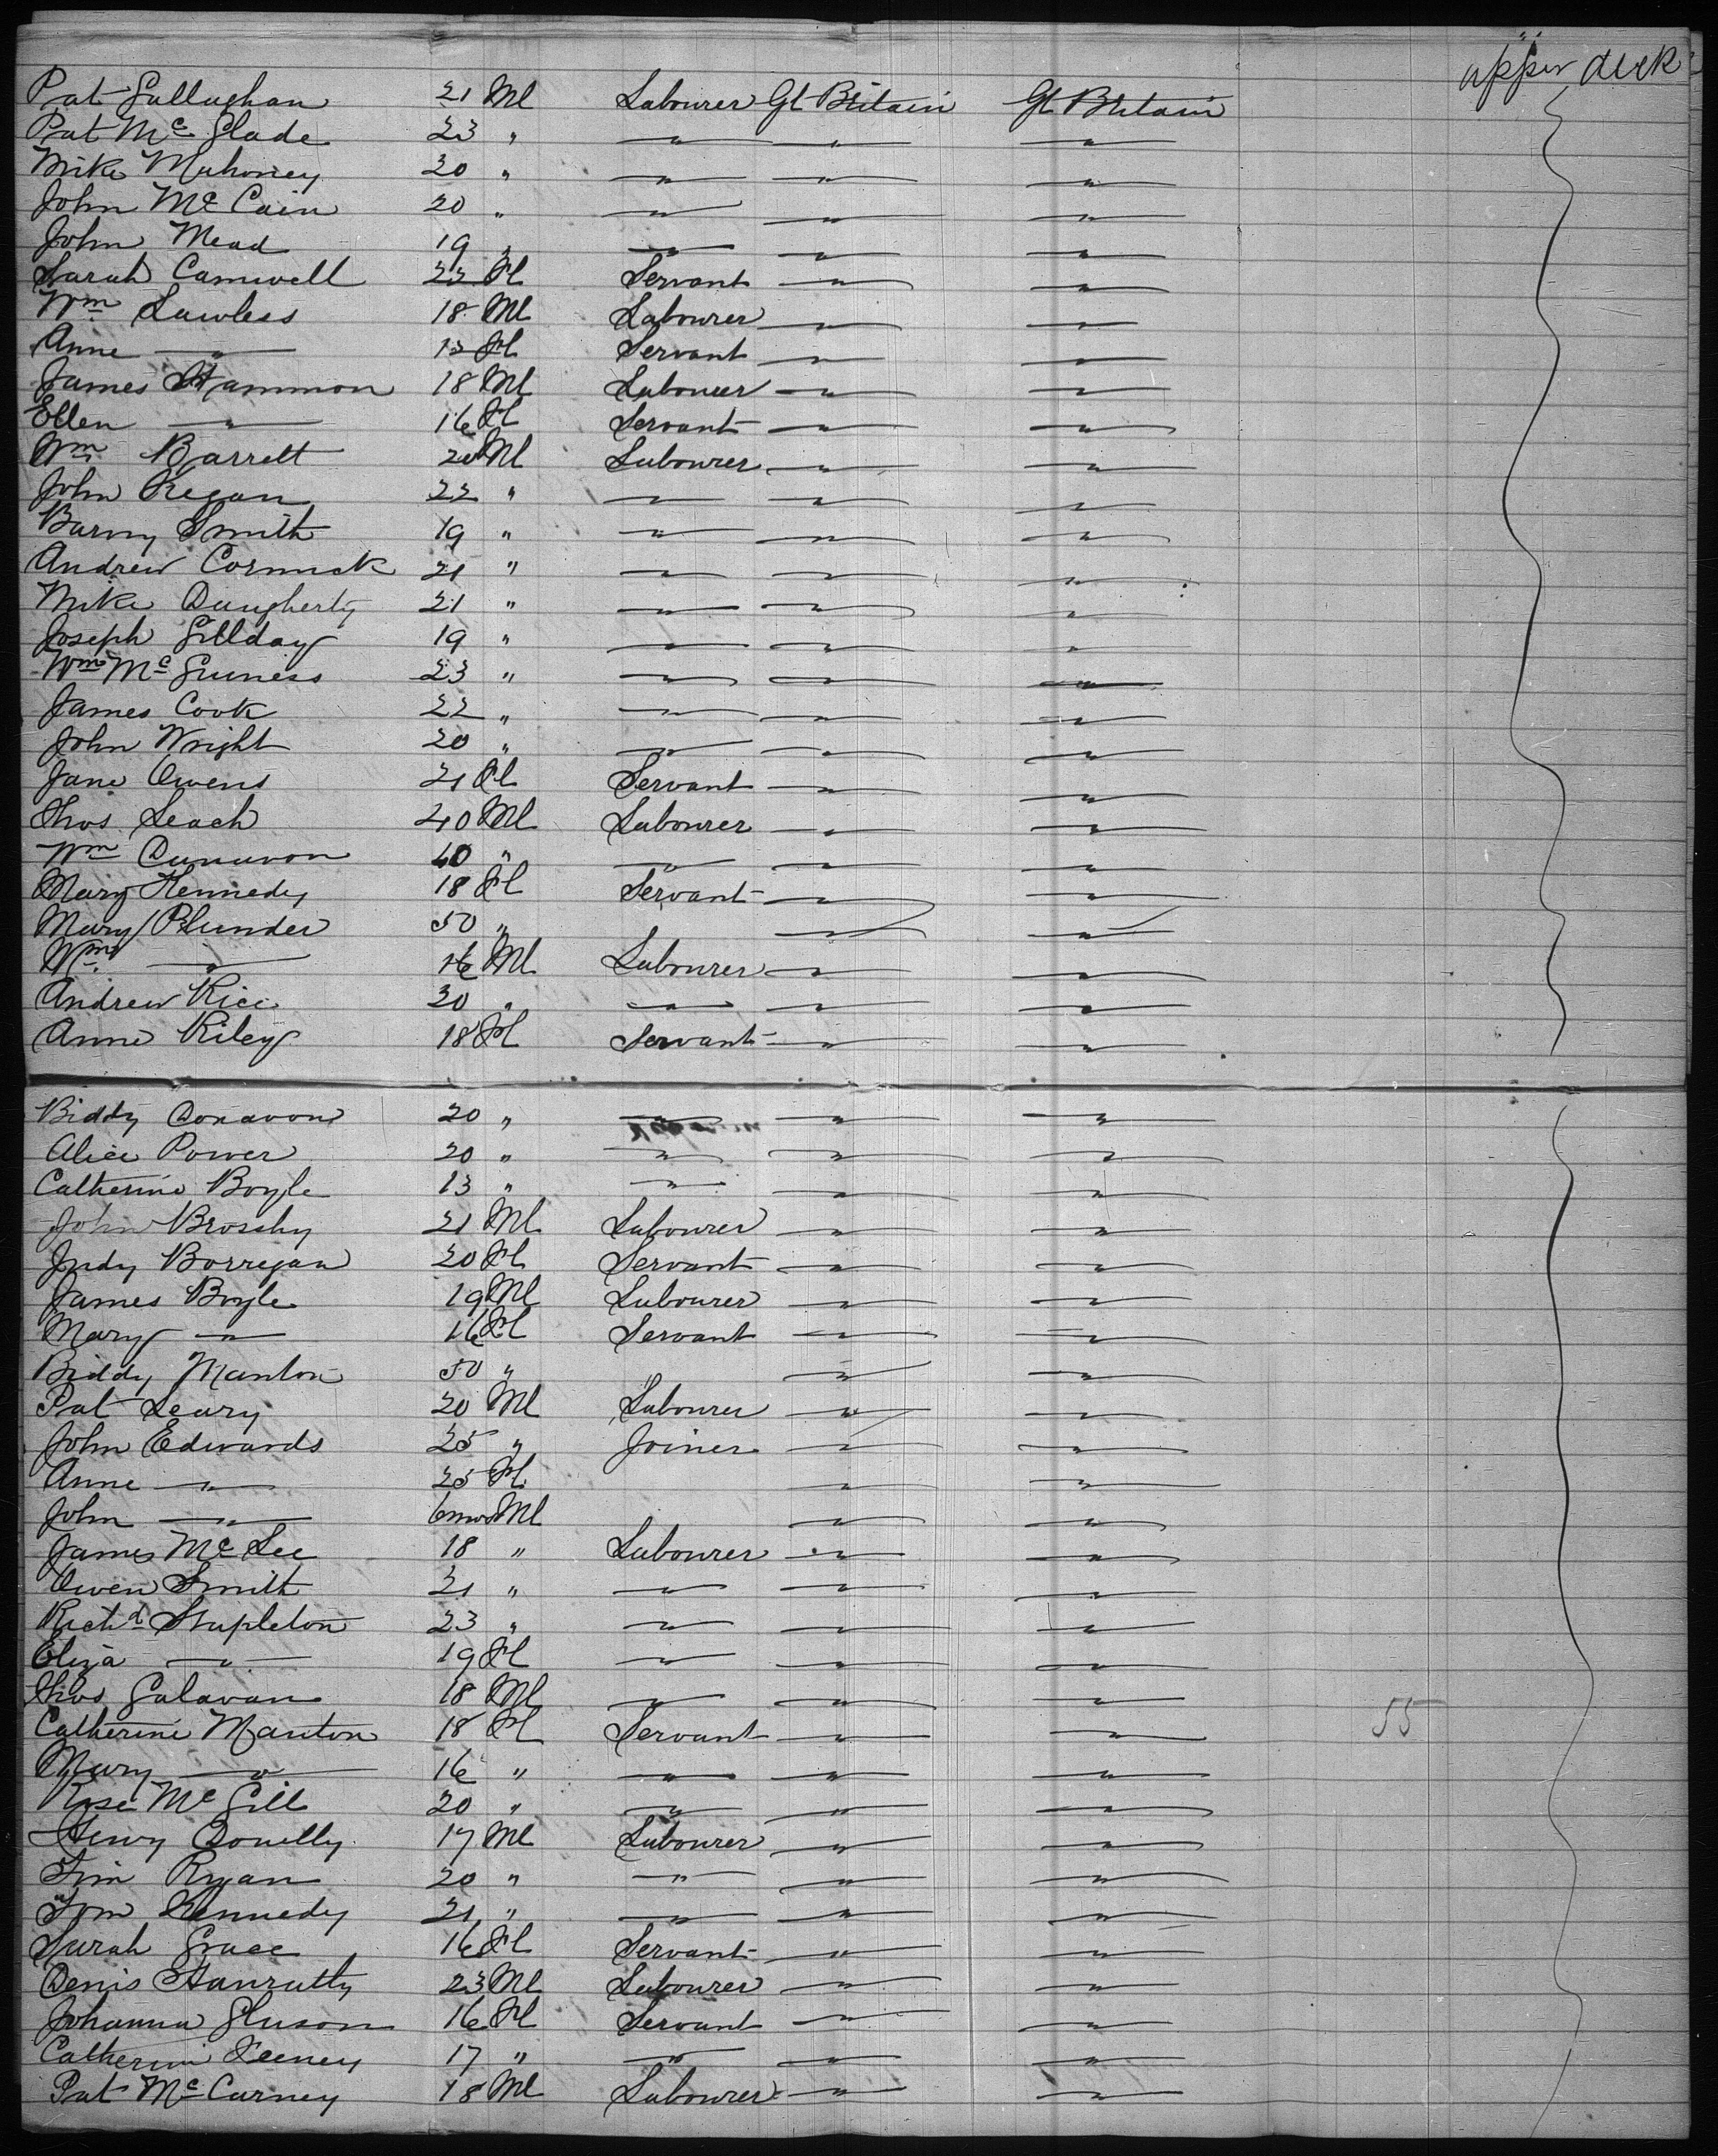 upper deck
Pat Gallaghan 21 Ml Labourer Gt Britain Gt Britain
Pat Mc Glade 23 " " " "
Mike Mahoney 20 " " " "
John Mc Cain 20 " " " "
John Mead 19 " " " "
Sarah Camwell 22 Fl Servant " "
Wm Lawless 18 Ml Labourer " "
Anne " Fl Servant " "
James Hammon 18 Ml Labourer " "
Ellen " 16 Fl Servant " "
Wm Barrett 20 Ml Labourer " "
John Regan 22 " " " "
Barny Smith 19 " " " "
Andrew Cormick 21 " " " "
Mike Daugherty 21 " " " "
Joseph Gillday 19 " " " "
Wm Mc Guiness 23 " " " "
James Cook 22 " " " "
John Wright 20 " " " "
Jane Owens 21 Fl Servant " "
Thos Leach 40 Ml Labourer " "
Wm Dunavon 40 " " " "
Mary Kennedy 18 Fl Servant " "
Mary Plunder 50 " " "
Wm " 16 Ml Labourer " "
Andrew Rice 20 " " " "
Anne Riley 18 Fl Servant " "
Biddy Donavon 20 " " " "
Alice Power 20 " " " "
Catherine Boyle 13 " " " "
John Brosshy 21 Ml Labourer " "
Judy Borregan 20 Fl Servant " "
James Boyle 19 Ml Labourer " "
Mary " 16 Fl Servant " "
Biddy Manton 50 " " "
Pat Leary 20 Ml Labourer " "
John Edwards 25 " Joiner " "
Anne " 25 Fl " "
John " 6mos Ml " "
James Mc Lee 18 " Labourer " "
Owen Smith 21 " " " "
Richd Stapleton 23 " " " "
Eliza " 19 Fl " " "
Thos Galavan 18 Ml " " "
Catherine Manton 18 Fl Servant " " 55
Mary " 16 " " " "
Rose Mc Gill 20 " " " "
Henry Donelly 17 Ml Labourer " "
Tim Ryan 20 " " " "
Tom Kennedy 21 " " " "
Sarah Grace 16 Fl Servant " "
Denis Hanratty 23 Ml Labourer " "
Johanna Gluson 16 Fl Servant " "
Catherine Feeney 17 " " " "
Pat Mc Carney 18 Ml Labourer " "